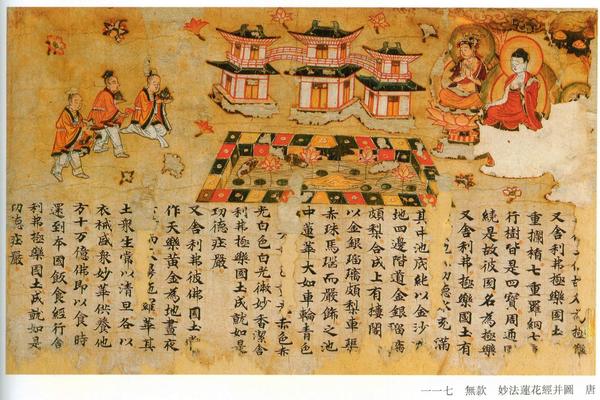 極樂
又舍利弗極樂國土
重攔楯七重羅網七
行樹皆是四寶周
繞是故彼國名為極樂
又舍利弗極樂國土有
充滿
其中池底純以金沙
地四邊階道金銀瑠
頗梨合成上有樓閣
以金銀瑠璃頗梨車磲
赤珠馬瑙而嚴飾之池
中蓮華大如車輪青色
赤色赤
光白色白光微妙香潔舍
利弗極樂國土成就如是
功德莊嚴
又舍利弗彼佛國土
作天樂黃金為地晝夜
華其
土衆生常以清旦各以
衣裓盛衆妙華供養他
方十万億佛即以食時
還到本國飯食經行舍
利弗極樂國土成就如是
功德莊嚴
一一七 無款 妙法蓮花經并圖 唐